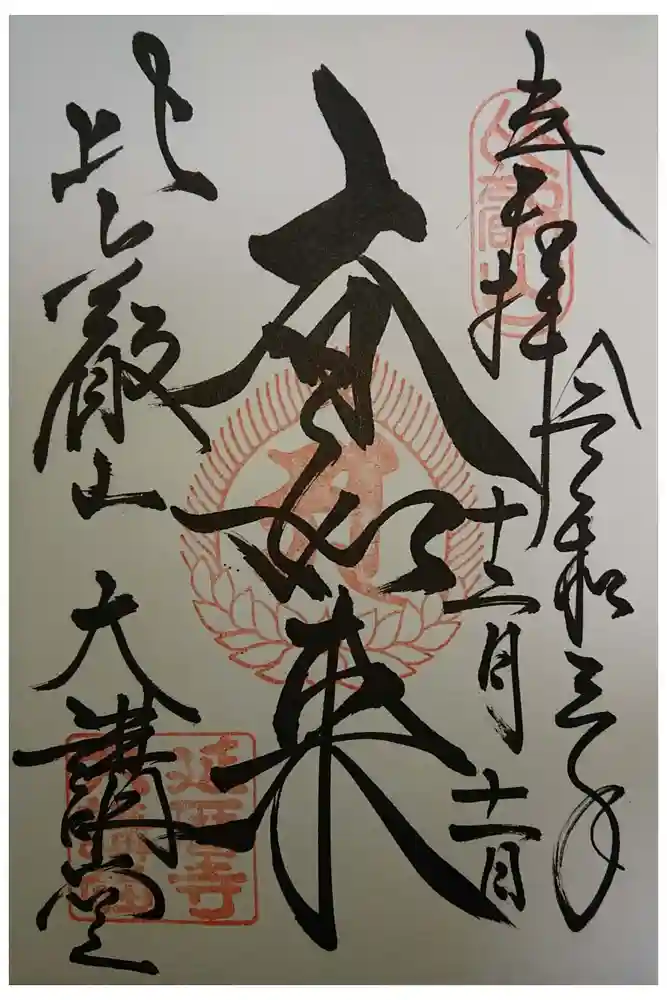 奉拝
令和三年
十二月十一日
大日如来
比叡山
大講堂
比叡山
延暦寺